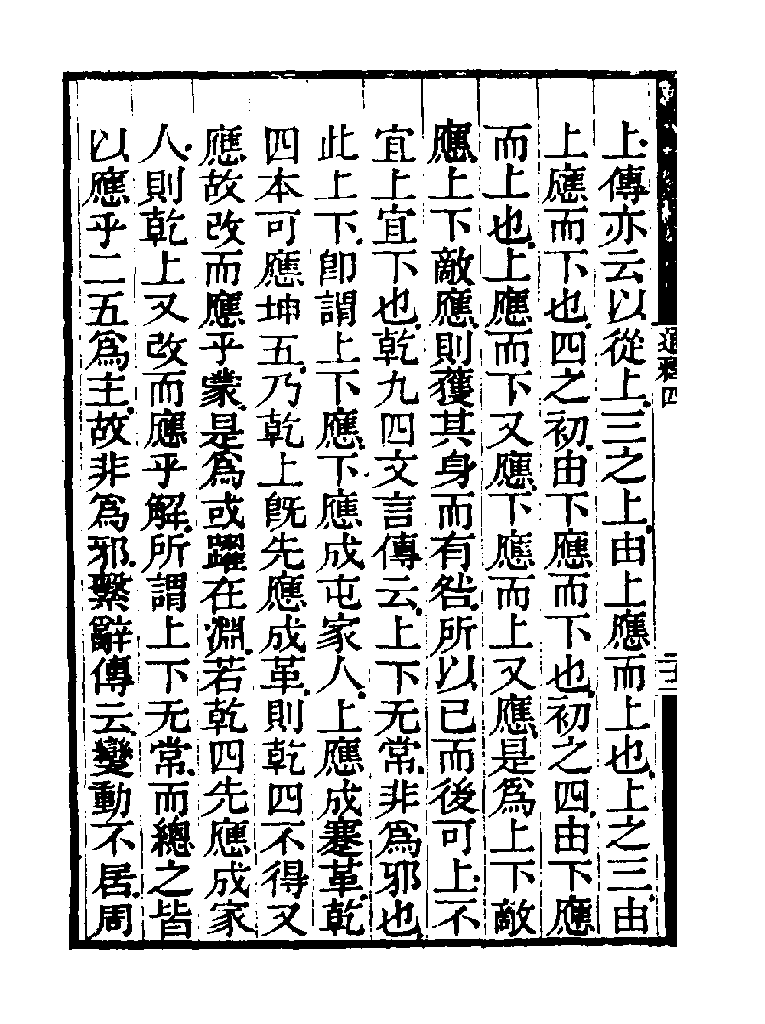 上傳亦云以從上三之上由上應而上也上之三由
上應而下也四之初由下應而下也初之四由下應
而上也上應而下又應下應而上又應是爲上下敵
應上下敵應則獲其身而有咎所以已而後可上不
宜上宜下也乾九四文言傳云上下无常非爲邪也
此上下卽謂上下應下應成屯家人上應成蹇革乾
四本可應坤五乃乾上旣先應成革則乾四不得又
應故改而應乎蒙是爲或躍在淵若乾四先應成家
人則乾上又改而應乎解所謂上下无常而總之皆
以應乎二五爲主故非爲邪繫辭傳云變動不居周
通釋四